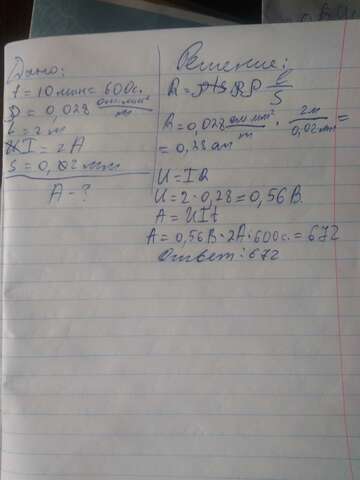 Дано:
t = 10 мин = 600с.
ρ = 0,028 ом·мм²/м
l = 2 м
I = 2A
S = 0,02 мм
A - ?
Решение:
R = ρ l/S
R = 0,028 ом·мм²/м · 2м/0,02мм =
= 0,28 ом
U = IR
U = 2 · 0,28 = 0,56 В.
A = UIt
A = 0,56В · 2A · 600с. = 672
Ответ: 672